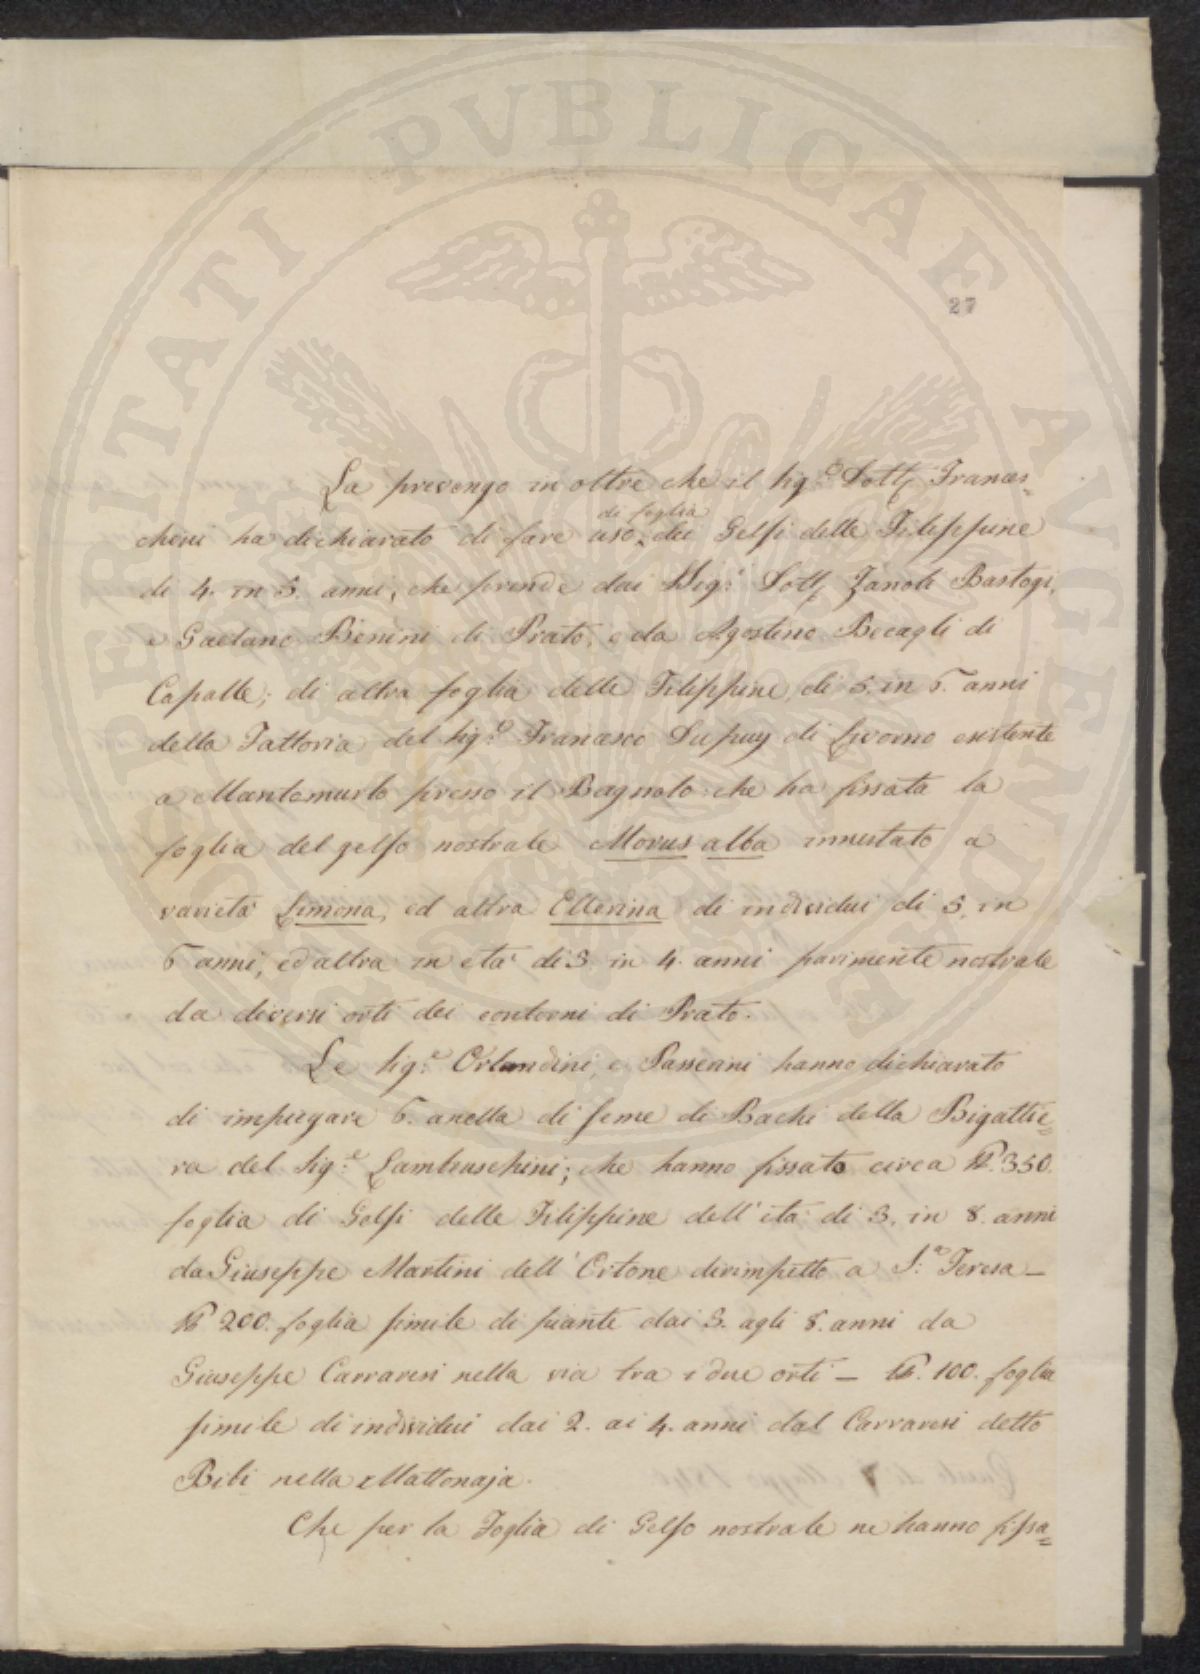 PROSPERITATI PVBLICAE AVGENDAE
27
La prevengo in oltre che il Sig.e Dott. Frances=
chini ha dichiarato di fare uso di foglia dei Gelsi delle Filippine
di 4. in 5. anni, che prende dai Sig.i Dott. Zanobi Bastogi,
e Gaetano Benini di Prato, e da Agostino Becagli di
Capalle; di altra foglia delle Filippine di 5. in 6. anni
della Fattoria del Sig.e Francesco Dupuy di Livorno esistente
a Montemurlo presso il Bagnolo: che ha fissata la
foglia del gelso nostrale Morus alba innestato a
varietà Limona, ed altra Ellerina di individui di 5. in
6 anni, ed altra in età di 3. in 4. anni parimente nostrale
da diversi orti dei contorni di Prato.
Le Sig.e Orlandini, e Passerini hanno dichiarato
di impiegare 6. anella di seme di Bachi della Bigattie=
ra del Sig.e Lambruschini; che hanno fissato circa lb. 350.
foglia di Gelsi delle Filippine dell'età di 3. in 8. anni
da Giuseppe Martini dell'Ortone dirimpetto a S.a Teresa —
lb 200. foglia simile di piante dai 3. agli 8. anni da
Giuseppe Carraresi nella via tra i due orti — lb. 100. foglia
simile di individui dai 2. ai 4. anni dal Carraresi detto
Bibi nella Mattonaja.
Che per la Foglia di Gelso nostrale ne hanno fissa=